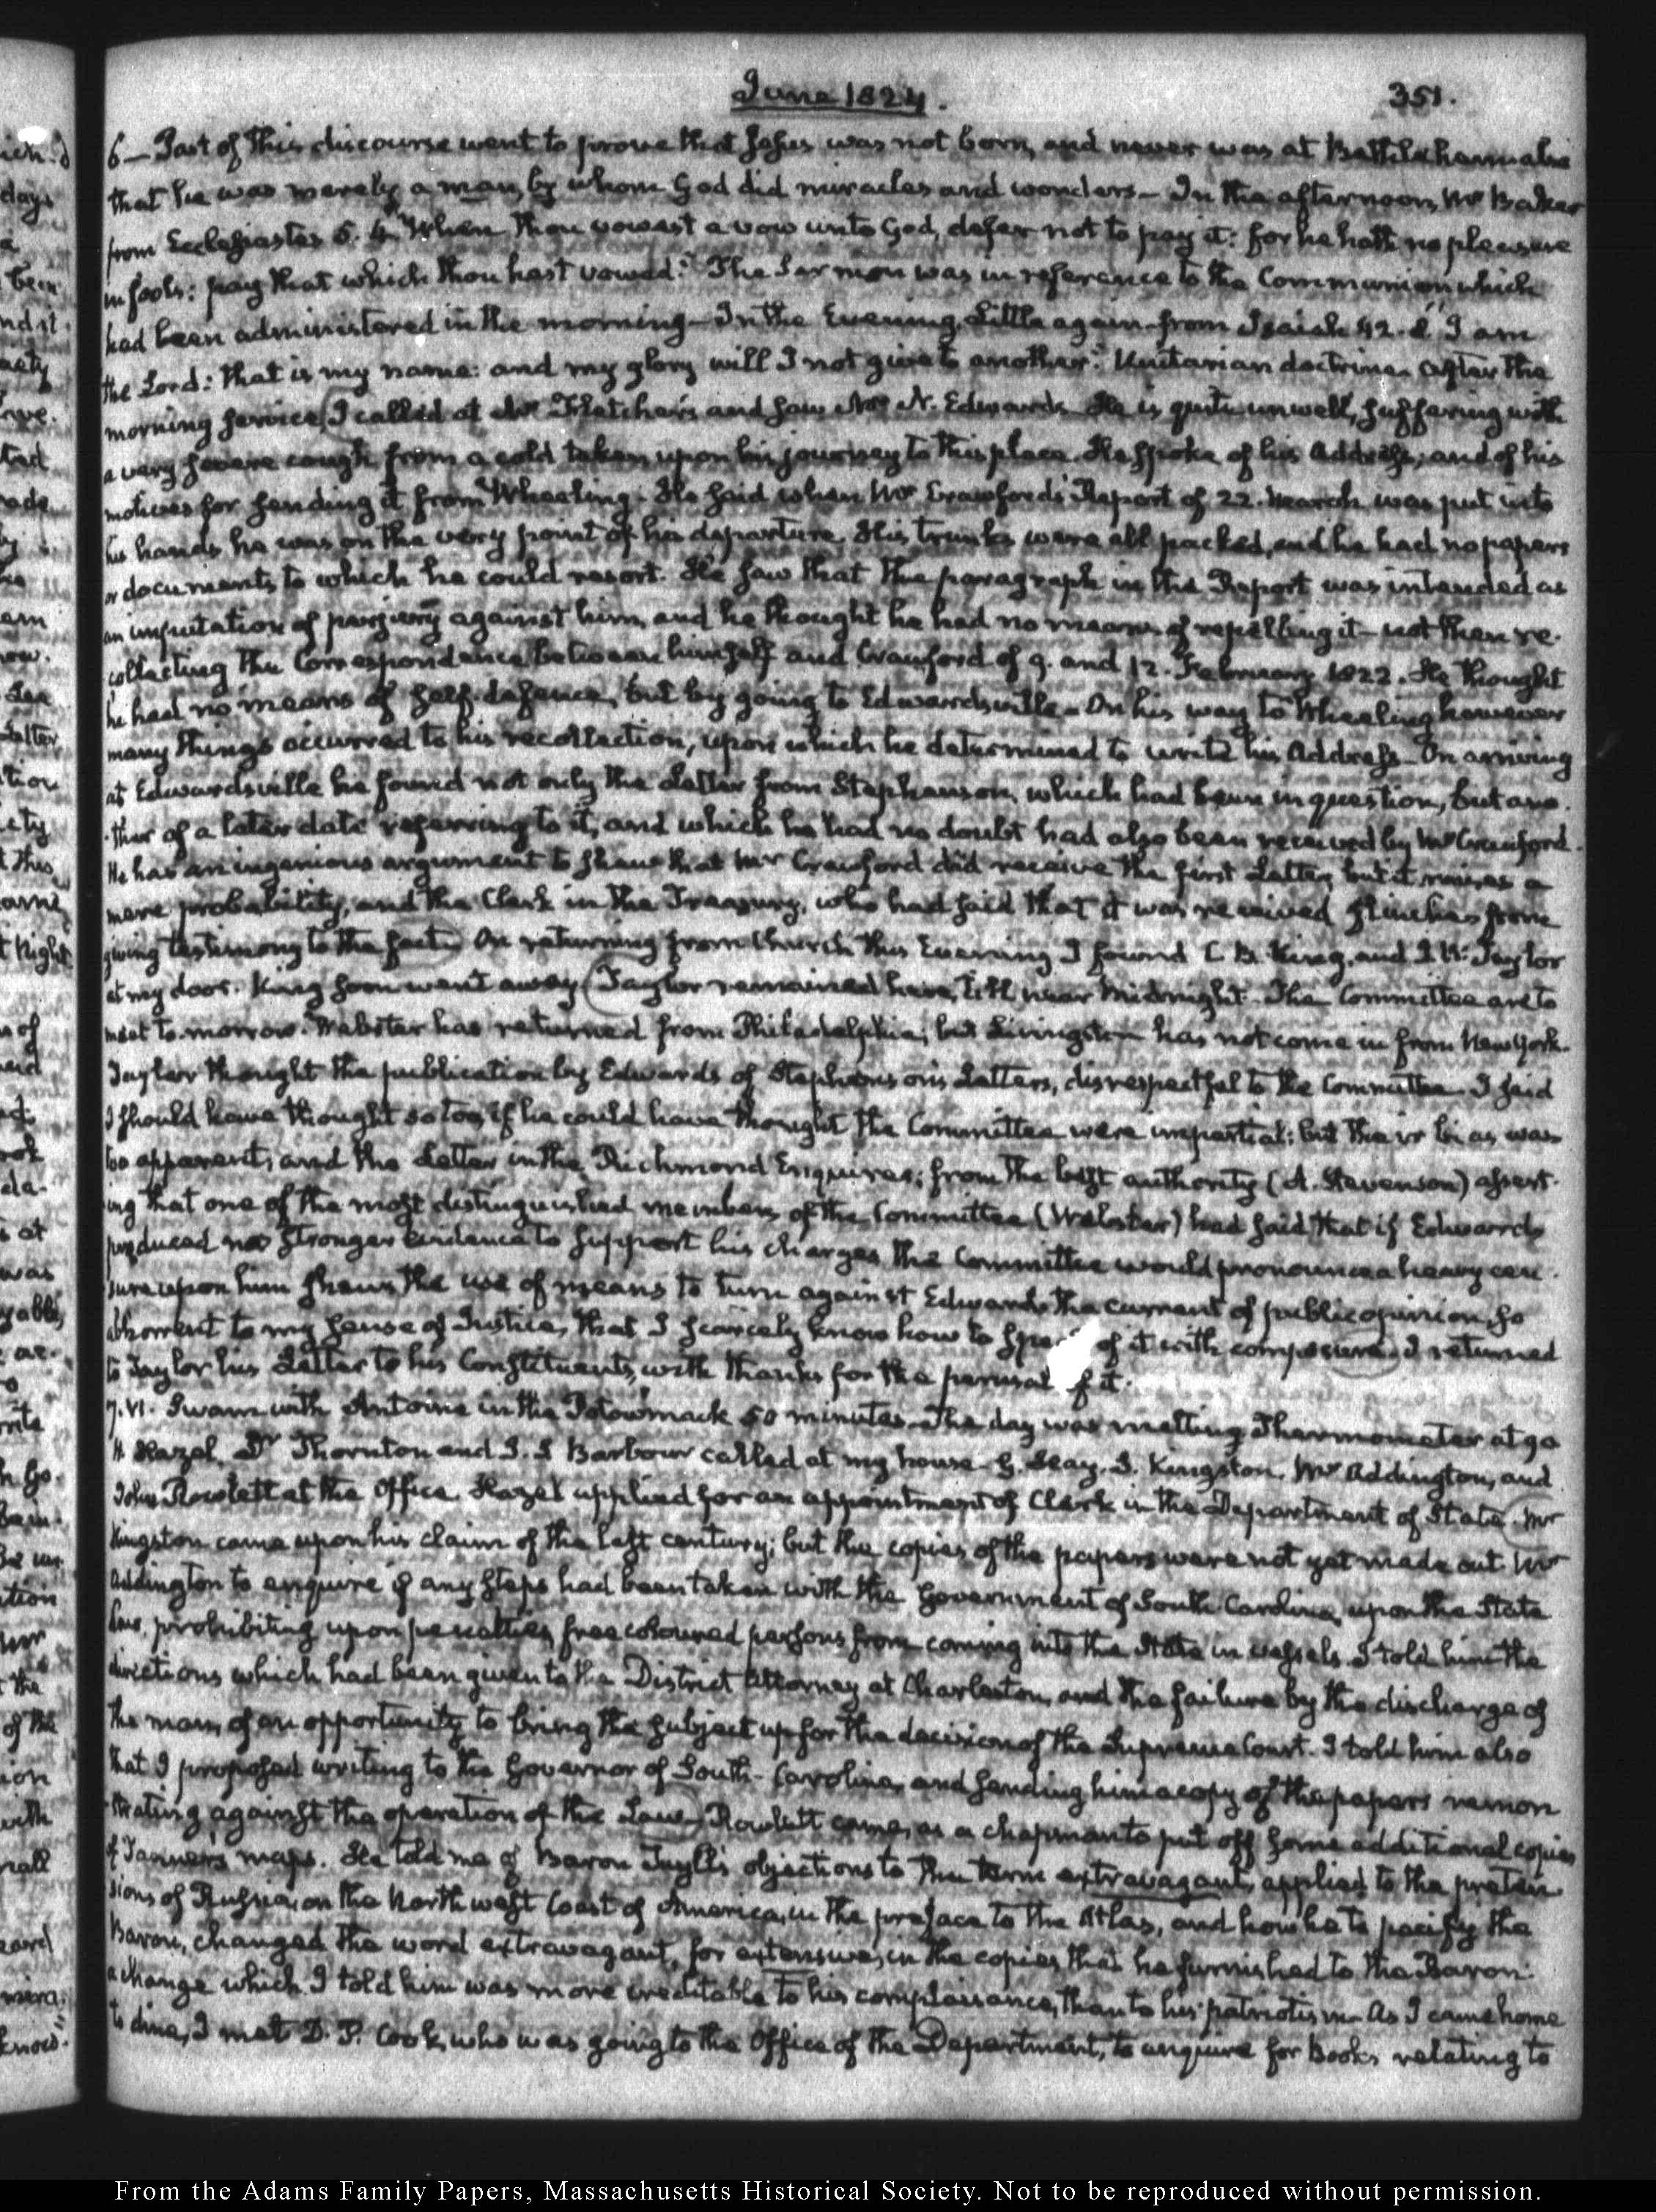 June 1824.
351.
6— Part of this discourse went to prove that Jesus was not born, and never was at Bethlehem
that he was merely a man, by whom God did miracles and wonders— In the afternoon, Mr Baker
from Ecclesiastes 5. 4. "When thou vowest a vow unto God, defer not to pay it: for he hath no pleasure
in fools: pay that which thou hast vowed." The Sermon was in reference to the Communion which
had been administered in the morning— In the Evening, Little again from Isaiah 42. 8 "I am
the Lord: that is my name: and my glory will I not give to another." Unitarian doctrine. After the
morning service, I called at Mr Fletcher's and saw Mr N. Edwards. He is quite unwell, suffering with
a very severe cough from a cold taken upon his journey to this place. He spoke of his Address, and of his
motives for sending it from Wheeling. He said when Mr Crawford's Report of 22. March was put into
his hands he was on the very point of his departure. His trunks were all packed, and he had no papers
or documents to which he could resort. He saw that the paragraph in the Report was intended as
an imputation of perjury against him, and he thought he had no means of repelling it— not then re-
collecting the Correspondence between himself and Crawford of 9. and 12. February 1822. He thought
he had no means of self defence, but by going to Edwardsville— On his way to Wheeling however
many things occurred to his recollection, upon which he determined to write his Address— On arriving
at Edwardsville he found not only the Letter from Stephenson, which had been in question, but ano-
-ther of a later date referring to it, and which he had no doubt had also been received by Mr Crawford.
He has an ingenious argument to shew that Mr Crawford did receive the first Letter, but it raises a
mere probability, and the Clerk in the Treasury, who had said that it was received flinches from
giving testimony to the fact. On returning from Church this Evening I found C. B. King, and J. W. Taylor
at my door. King soon went away. Taylor remained here, till near Midnight. The Committee are to
meet to-morrow. Webster has returned from Philadelphia; but Livingston has not come in from New York.
Taylor thought the publication by Edwards of Stephenson's Letters, disrespectful to the Committee. I said
I should have thought so too, if he could have thought the Committee were impartial: but their bias was
too apparent, and the Letter in the Richmond Enquirer; from the best authority (A. Stevenson) assert-
ing that one of the most distinguished members of the Committee (Webster) had said that if Edwards
produced no stronger evidence to support his charges the Committee would pronounce a heavy cen-
sure upon him shews the use of means to turn against Edwards the current of public opinion, so
abhorrent to my sense of Justice, that I scarcely know how to speak of it with composure. I returned
to Taylor his Letter to his Constituents, with thanks for the perusal of it.
7. VI. Swam with Antoine in the Potowmack 50 minutes. The day was melting Thermometer at 90
H. Hazel, Dr Thornton and J. S Barbour called at my house— G. Hay. S. Kingston, Mr Addington, and
John Rowlett at the Office. Hazel applied for an appointment of Clerk in the Department of State. Mr
Kingston came upon his claim of the last century; but the copies of the papers were not yet made out. Mr
Addington to enquire if any steps had been taken with the Government of South Carolina, upon the State
Law, prohibiting upon penalties, free coloured persons from coming into the State in vessels. I told him the
directions which had been given to the District Attorney at Charleston, and the failure by the discharge of
the man, of an opportunity to bring the subject up for the decision of the Supreme Court. I told him also
that I proposed writing to the Governor of South-Carolina, and sending him a copy of the papers remon
-strating against the operation of the Law— Rowlett came, as a chapman to put off some additional copies
of Tanner's maps. He told me of Baron Tuyll's objections to the term extravagant, applied to the preten-
sions of Russia, on the North west Coast of America, in the preface to the Atlas, and how he to pacify the
Baron, changed the word extravagant, for extensive, in the copies that he furnished to the Baron:
a change which I told him was more creditable to his complaisance, than to his patriotism— As I came home
to dine, I met D. P. Cook, who was going to the Office of the Department, to enquire for Books relating to
From the Adams Family Papers, Massachusetts Historical Society. Not to be reproduced without permission.